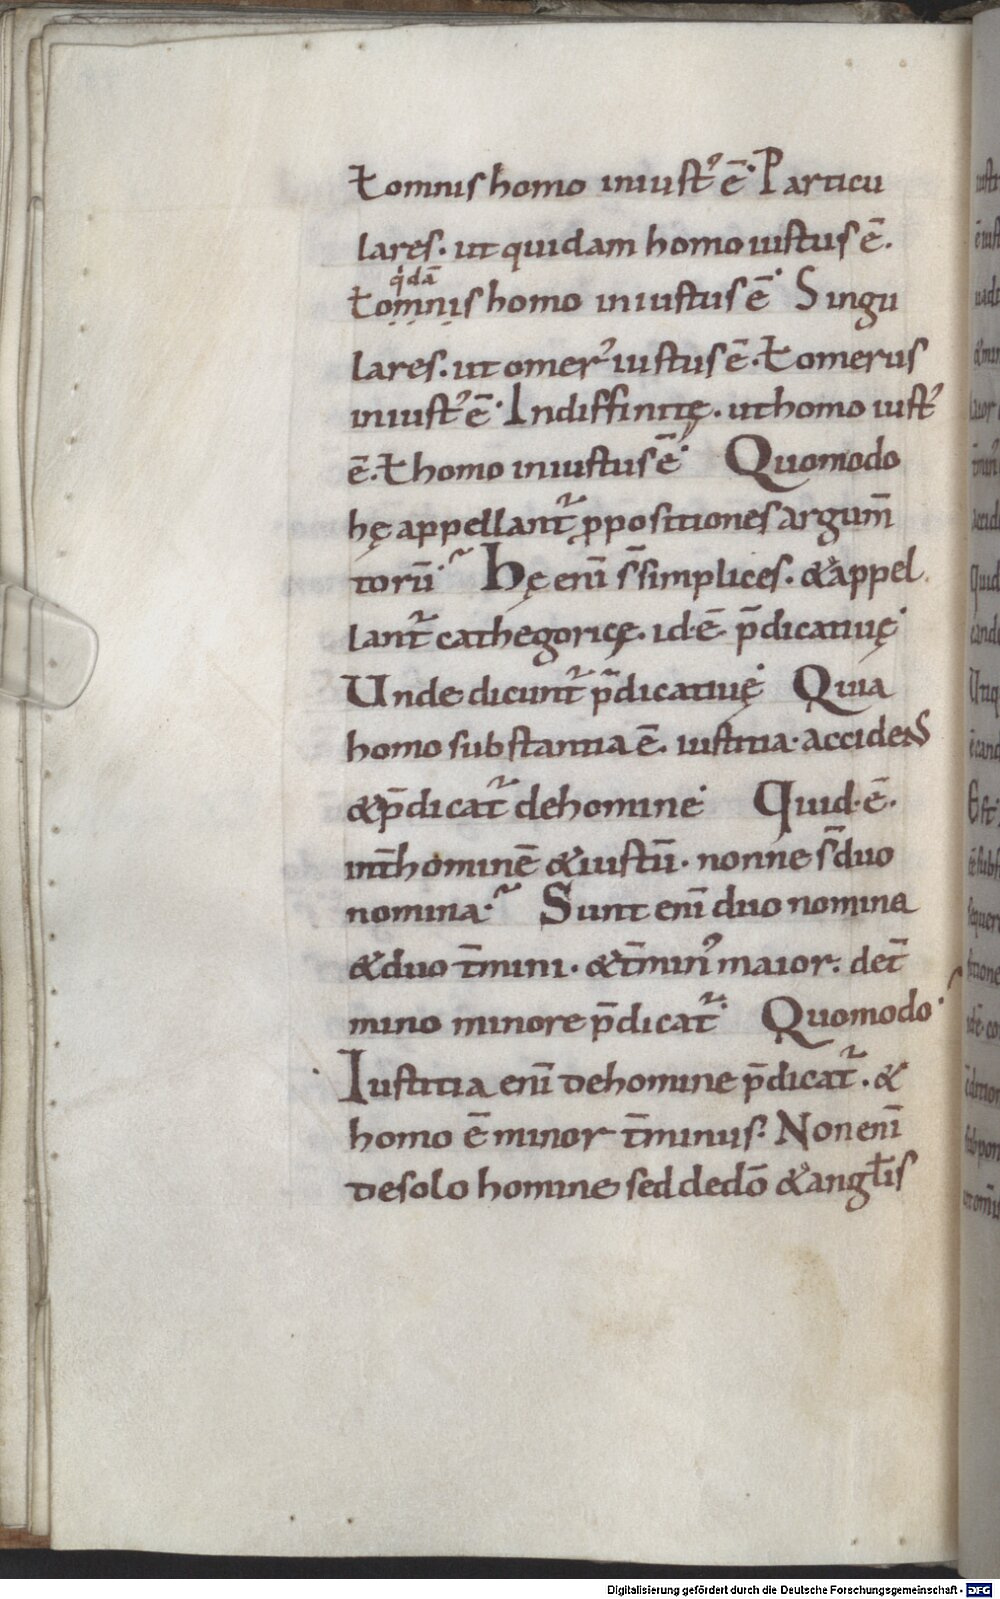 ł omnis homo iniust᾿ ē· Particu
lares· ut quidam homo iustus ē·
q̇dā
ł omnis homo iniustus ē· Singu
lares· ut omer᾿ iustus ē· ł omerus
iniust᾿ ē· Indiffinitę· ut homo iust᾿
ē· ł homo iniustus ē· Quomodo
hę appellant᷑ ꝓpositiones argum̄
torū· Hę enī s̄ simplices· & appel
lant᷑ cathegoricę· id·ē· p̄dicatiuę·
Unde dicunt᷑ p̄dicatiuę· Quia
homo substantia ē· iustitia· accidens
& p̄dicat᷑ de homine· Quid·ē·
int̄ hominē & iustū· nonne s̄ duo
nomina· Sunt enī duo nomina
& duo t̄mini· & t̄min᾿ maior· de t̄
mino minore p̄dicat᷑· Quomodo·
Iustitia enī de homine p̄dicat᷑· &
homo ē minor t̄minus· Non enī
de solo homine sed de dō & angłis
Digitalisierung gefördert durch die Deutsche Forschungsgemeinschaft - DFG